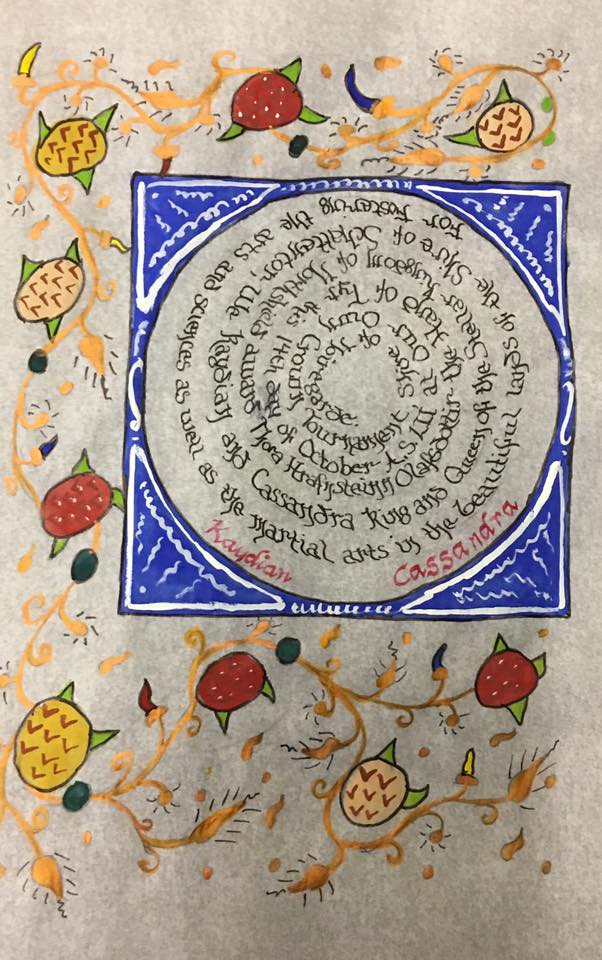 For Fostering the arts and sciences as well as the martial arts in the beautiful lands of the Shire of Schattentor, We Kaydian and Cassandra King and Queen of the Stellar Kingdom of Northshield award Thora Hrafnsteinn Olafsdottir the Hand of Tyr this 14th day of October A.S. LII at Our Own Crown Tournament Shire of Howegarde.
Kaydian
Cassandra